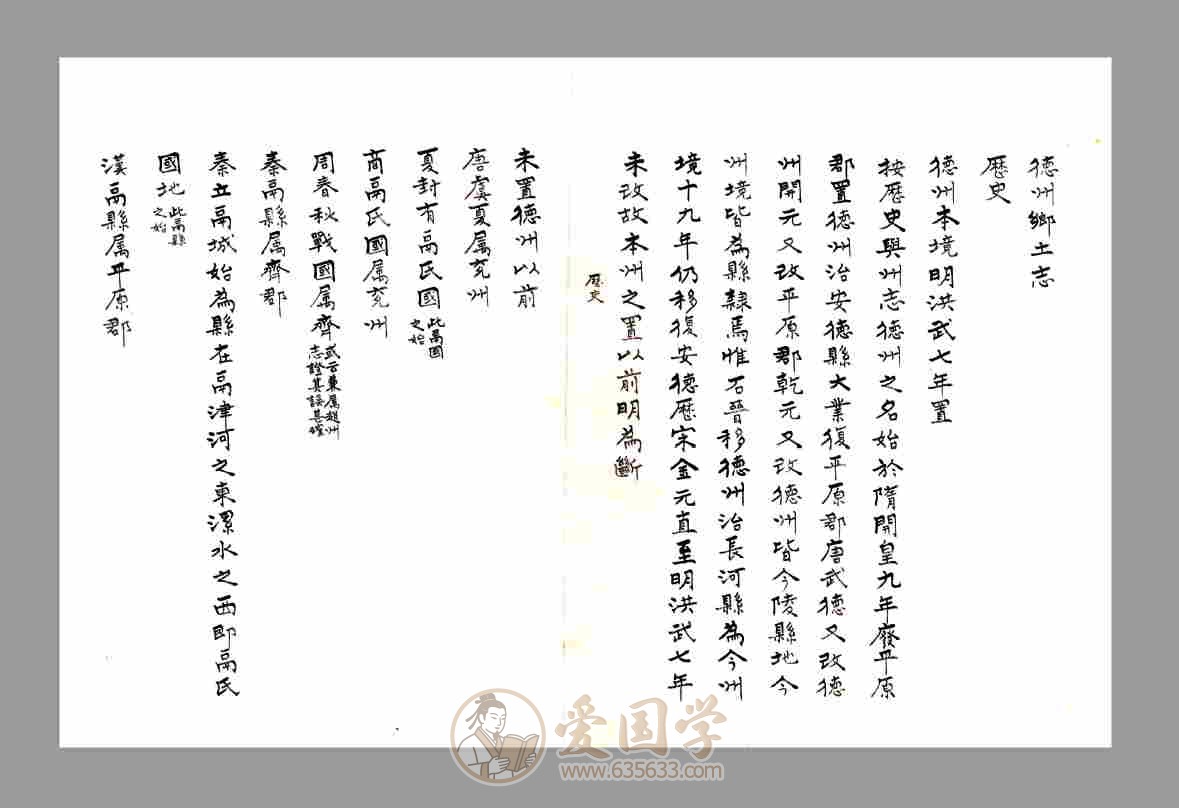 德州鄉土志
歷史
德州本境明洪武七年置
按歷史與州志德州之名始於隋開皇九年廢平原
郡置德州治安德縣大業復平原郡唐武德又改德
州開元又改平原郡乾元又改德州皆今陵縣地今
州境皆為縣隸焉惟石晉移德州治長河縣為今州
境十九年仍移復安德歷宋金元直至明洪武七年
未改故本州之置以前明為斷
歷史
未置德州以前
唐虞夏属兖州
夏封有鬲氏國此鬲國
之始
商鬲氏國属兖州
周春秋戰國属齊或云兼属趙州
志證其誤甚確
秦鬲縣属齊郡
秦立鬲城始為縣在鬲津河之東漯水之西即鬲氏
國地此鬲縣
之始
漢鬲縣属平原郡
爱国学
www.635633.com